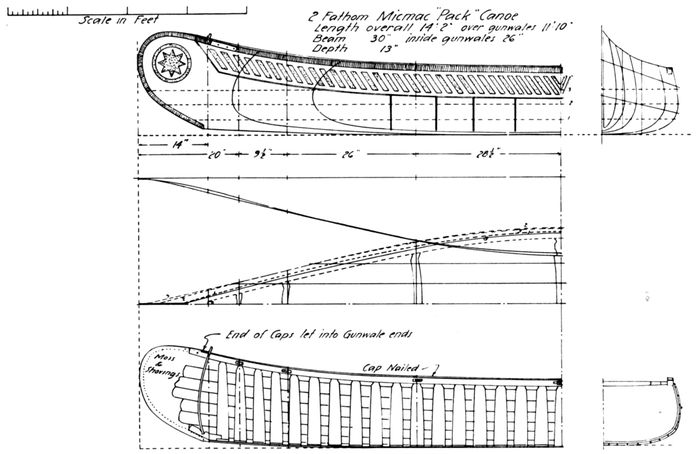 Scale in Feet
2 Fathom Micmac "Pack" Canoe
Length overall 14' 2" over gunwales 11' 10"
Beam 30" inside gunwales 26"
Depth 13"
14"
20" 9½" 26" 28½"
End of Caps let into Gunwale ends
Moss
&
Shavings
Cap Nailed